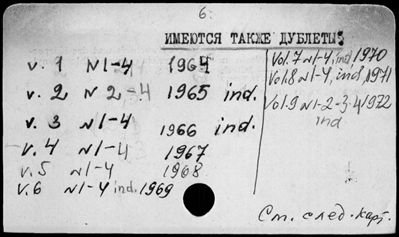 6.
ИМЕЮТСЯ ТАКЖЕ ДУБЛЕТЫ:
v. 1 N1-4 1964
v. 2 N2-4 1965 ind.
v. 3 N1-4 1966 ind.
v. 4 N1-4 1967
v. 5 N1-4 1968
v. 6 N1-4 ind. 1969
Vol. 7 N1-4, ind 1970
Vol. 8 N1-4, ind. 1971
Vol. 9 N1-2-3-4 1972
ind
См. след. карт.